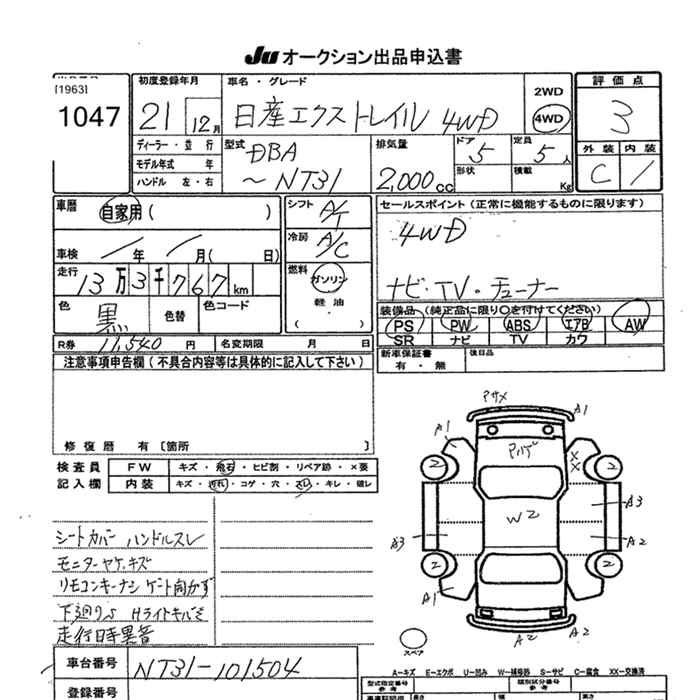 JU オークション出品申込書
[1963]
1047
初度登録年月
21 12月
ディーラー・並行
モデル年式 年
ハンドル 左・右
車名・グレード
日産エクストレイル 4WD
2WD
4WD
型式
DBA
～NT31
排気量
2,000cc
ドア
5
定員
5人
形状
積載
Kg
評価点
3
外装 内装
C 1
車歴
自家用( )
車検 年 月( 日)
走行
13万3千767km
色
黒
色替
色コード
シフト
A/T
冷房
A/C
燃料
ガソリン
軽油
( )
セールスポイント (正常に機能するものに限ります)
4WD
ナビ・TV・チューナー
装備品(純正品に限り○を付けてください)
PS PW ABS エアB AW
SR ナビ TV カワ
新車保証書
有・無
後日品
R券 11,540円
名変期限 月 日
注意事項申告欄(不具合内容等は具体的に記入して下さい)
修復歴 有〔箇所 〕
検査員
記入欄
FW キズ・飛石・ヒビ割・リペア跡・×要
内装 キズ・汚れ・コゲ・穴・スレ・キレ・破レ
シートカバー ハンドルスレ
モニターヤケ.キズ
リモコンキーナシ ゲート向かず
下廻りS Hライトキバミ
走行時異音
車台番号 NT31-101504
登録番号
A1
A1
XX
2
2
A3
W2
A3
A2
2
2
A1
A2
A2
スペア
A−キズ E−エクボ U−凹み W−補修跡 S−サビ C−腐食 XX−交換済
型式指定番号
参考
類別区分番号
参考
長さ
幅
高さ